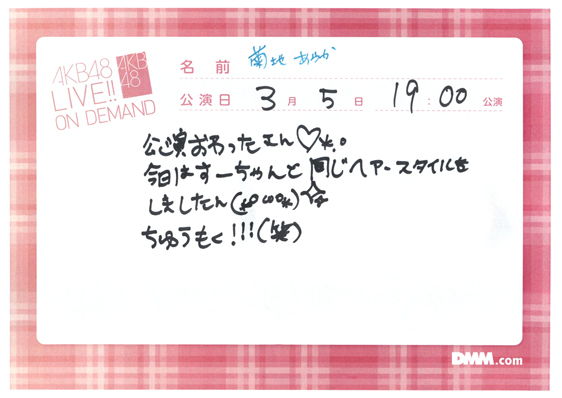 AKB48
LIVE!!
ON DEMAND
AKB
48
名前 菊地 あやか
公演日 3月5日 19:00 公演
公演おわったょん♡*.。
今日はすーちゃんと同じヘアースタイルを
しましたん(*°∞°*)☆
ちゅうもく!!!(笑)
DMM.com